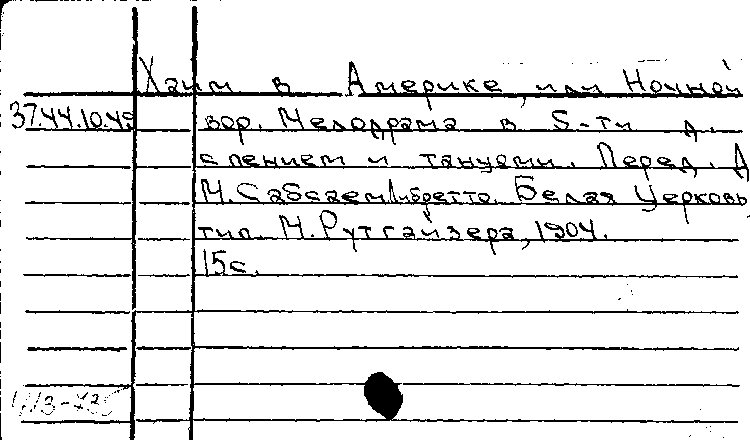 Хаим в Америке, или Ночной
37.44.10.45 вор. Мелодрама в 5-ти д.
с пением и танцами. Перед. Д
М. Сабсаем Либретто. Белая Церковь
тип. М. Рутгайзера, 1904.
15с.